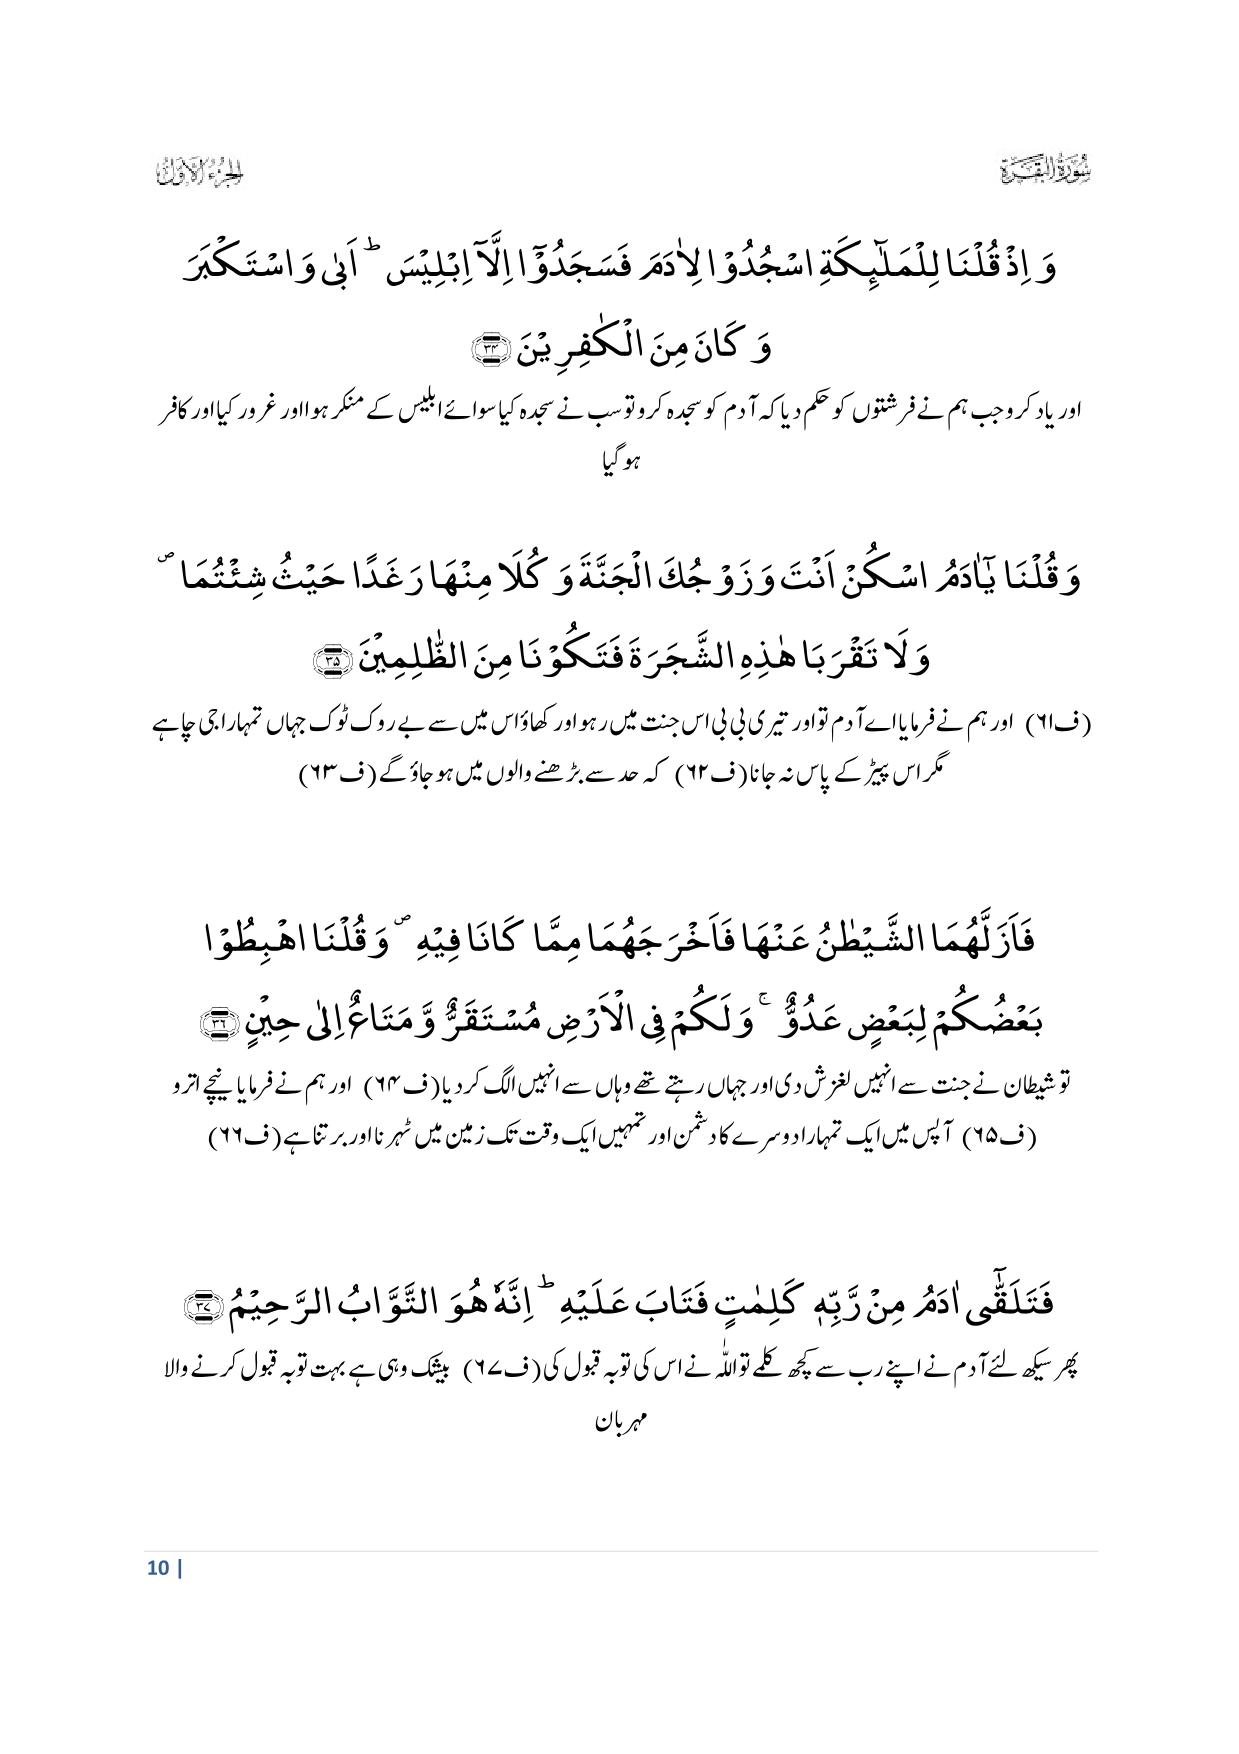 سُوْرَةُ الْبَقَـرَة
اَلْجُزْءُ الْاَوَّلُ
وَ اِذْ قُلْنَا لِلْمَلٰٓىِٕكَةِ اسْجُدُوْا لِاٰدَمَ فَسَجَدُوْۤا اِلَّاۤ اِبْلِیْسَ ؕ اَبٰى وَ اسْتَكْبَرَ
وَ كَانَ مِنَ الْكٰفِرِیْنَ ۳۴
اور یاد کرو جب ہم نے فرشتوں کو حکم دیا کہ آدم کو سجدہ کرو تو سب نے سجدہ کیا سوائے ابلیس کے منکر ہوا اور غرور کیا اور کافر
ہوگیا
وَ قُلْنَا یٰۤاٰدَمُ اسْكُنْ اَنْتَ وَ زَوْجُكَ الْجَنَّةَ وَ كُلَا مِنْهَا رَغَدًا حَیْثُ شِئْتُمَا ۪
وَ لَا تَقْرَبَا هٰذِهِ الشَّجَرَةَ فَتَكُوْنَا مِنَ الظّٰلِمِیْنَ ۳۵
(ف۶۱) اور ہم نے فرمایا اے آدم تو اور تیری بی بی اس جنت میں رہو اور کھاؤ اس میں سے بے روک ٹوک جہاں تمہارا جی چاہے
مگر اس پیڑ کے پاس نہ جانا (ف۶۲) کہ حد سے بڑھنے والوں میں ہوجاؤ گے (ف۶۳)
فَاَزَلَّهُمَا الشَّیْطٰنُ عَنْهَا فَاَخْرَجَهُمَا مِمَّا كَانَا فِیْهِ ۪ وَ قُلْنَا اهْبِطُوْا
بَعْضُكُمْ لِبَعْضٍ عَدُوٌّ ۚ وَ لَكُمْ فِی الْاَرْضِ مُسْتَقَرٌّ وَّ مَتَاعٌ اِلٰى حِیْنٍ ۳۶
تو شیطان نے جنت سے انہیں لغزش دی اور جہاں رہتے تھے وہاں سے انہیں الگ کردیا (ف۶۴) اور ہم نے فرمایا نیچے اترو
(ف۶۵) آپس میں ایک تمہارا دوسرے کا دشمن اور تمہیں ایک وقت تک زمین میں ٹہرنا اور برتنا ہے (ف۶۶)
فَتَلَقّٰۤى اٰدَمُ مِنْ رَّبِّهٖ كَلِمٰتٍ فَتَابَ عَلَیْهِ ؕ اِنَّهٗ هُوَ التَّوَّابُ الرَّحِیْمُ ۳۷
پھر سیکھ لئے آدم نے اپنے رب سے کچھ کلمے تو اللہ نے اس کی توبہ قبول کی (ف۶۷) بیشک وہی ہے بہت توبہ قبول کرنے والا
مہربان
10 |